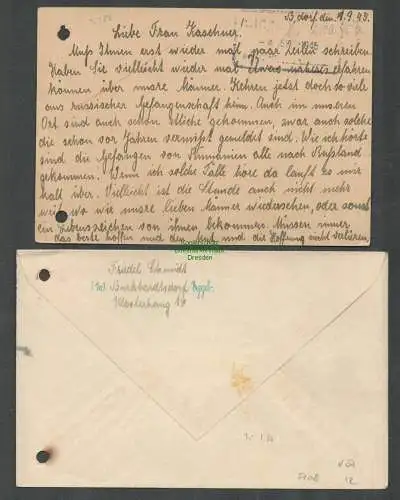 B,dorf den 1.9.49.
Liebe Frau Kaschner.
Muß Ihnen erst wieder mal paar Zeilen schreiben.
Haben Sie vielleicht wieder mal etwas näheres erfahren
können über unsre Männer. Kehren jetzt doch so viele
aus russischer Gefangenschaft heim. Auch im unsren
Ort sind auch schon Etliche gekommen, zwar auch solche
die schon vor Jahren vermißt gemeldet sind. Wie ich hörte
sind die Gefangen von Rumänien alle nach Rußland
gekommen. Wenn ich solche Fälle höre da läuft es mir
kalt über. Vielleicht ist die Stunde auch nicht mehr
weit wo wir unsre lieben Männer wiedersehen, oder sonst
ein Lebenszeichen von ihnen bekommen. Müssen immer
das beste hoffen und den Mut und die Hoffnung nicht verlieren.
Dresden
Friedel Schmidt
Burkhardtsdorf Erzgeb.